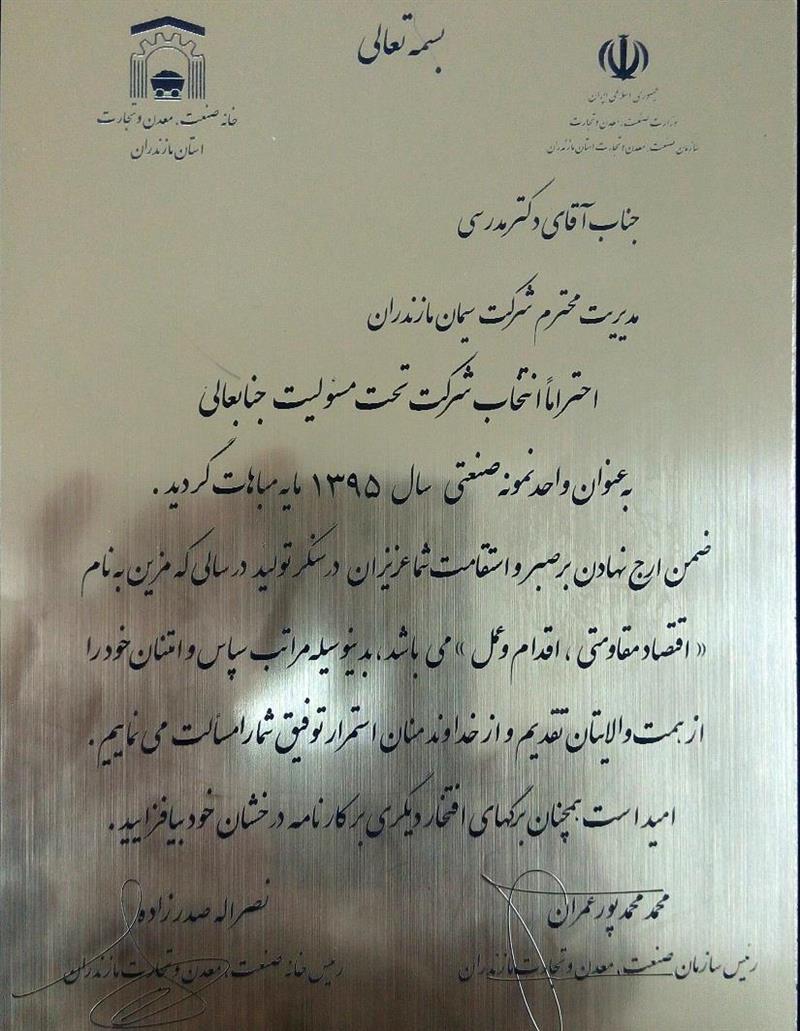 بسمه تعالی
جمهوری اسلامی ایران
وزارت صنعت، معدن و تجارت
سازمان صنعت، معدن و تجارت استان مازندران
خانه صنعت، معدن و تجارت
استان مازندران
جناب آقای دکتر مدرسی
مدیریت محترم شرکت سیمان مازندران
احتراماً انتخاب شرکت تحت مسئولیت جنابعالی
به عنوان واحد نمونه صنعتی سال ۱۳۹۵ مایه مباهات گردید .
ضمن ارج نهادن بر صبر و استقامت شما عزیزان در سنگر تولید در سالی که مزین به نام
« اقتصاد مقاومتی ، اقدام و عمل » می باشد، بدینوسیله مراتب سپاس و امتنان خود را
از همت والایتان تقدیم و از خداوند منان استمرار توفیق شما را مسألت می نماییم .
امید است همچنان برگهای افتخار دیگری بر کارنامه درخشان خود بیافزایید .
محمد محمدپور عمران
رئیس سازمان صنعت، معدن و تجارت مازندران
نصراله صدرزاده
رئیس خانه صنعت، معدن و تجارت مازندران